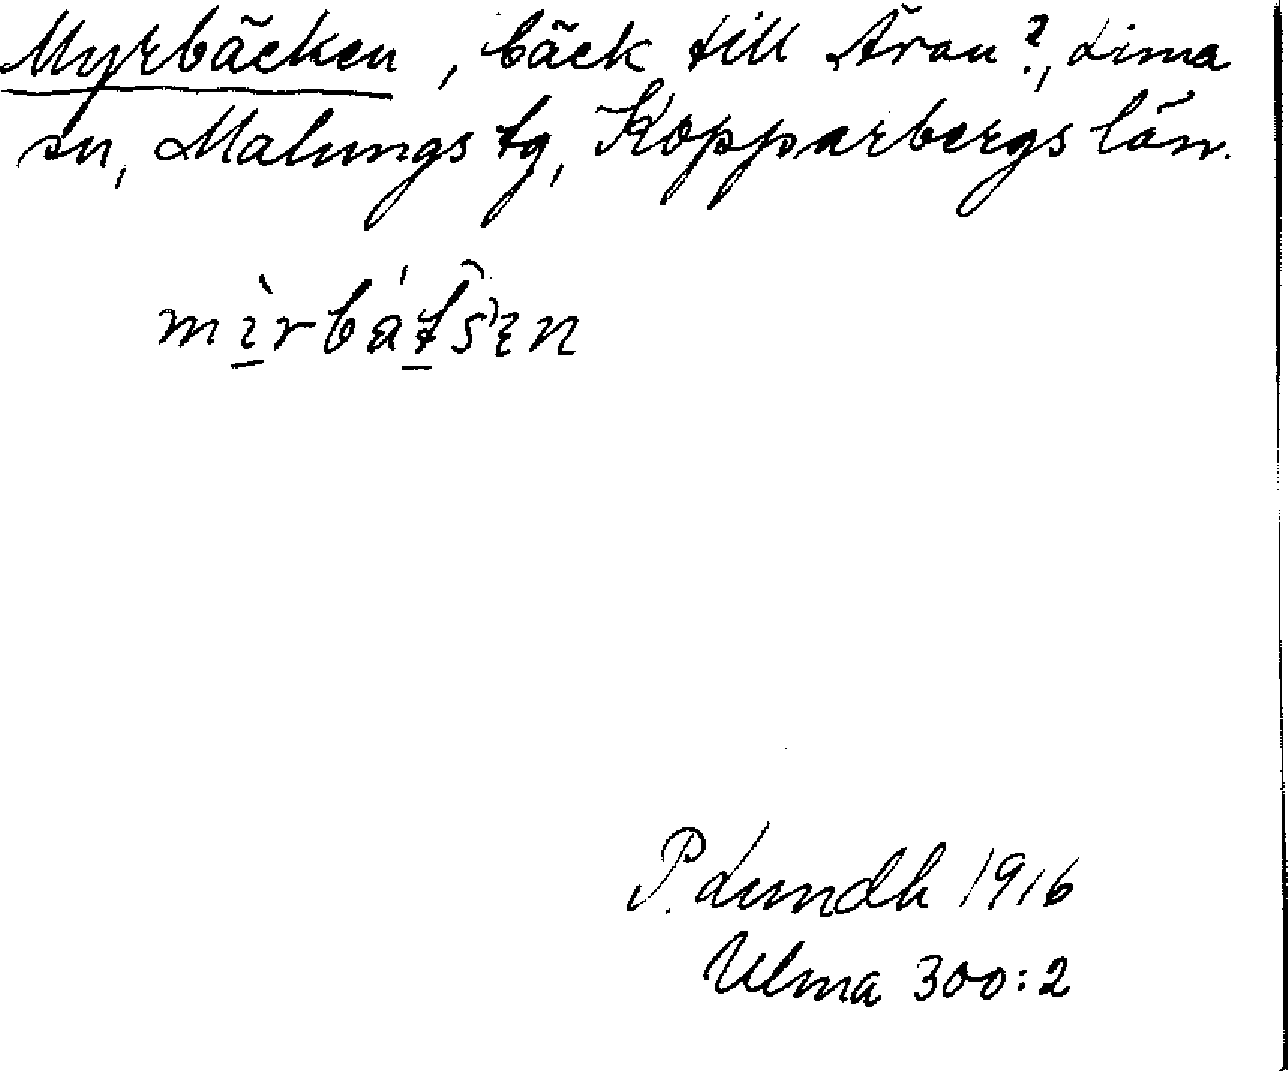 Myrbäcken, bäck till Åran?, Lima
sn, Malungs tg, Kopparbergs län.
P. Lundh 1916
Ulma 300:2